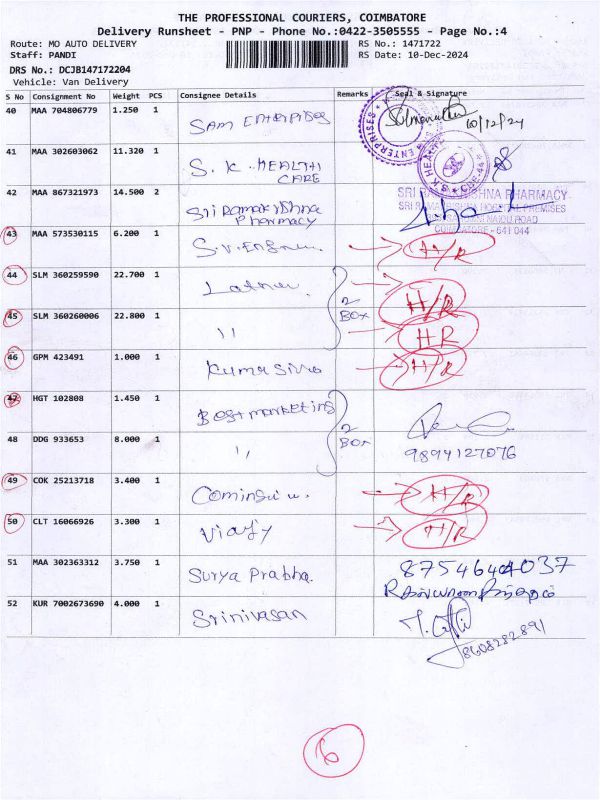 THE PROFESSIONAL COURIERS, COIMBATORE
Delivery Runsheet - PNP - Phone No.:0422-3505555 - Page No.:4
Route: MO AUTO DELIVERY
RS No.: 1471722
Staff: PANDI
RS Date: 10-Dec-2024
DRS No.: DCJB147172204
Vehicle: Van Delivery
S No Consignment No Weight PCS Consignee Details Remarks Seal & Signature
40 MAA 704806779 1.250 1 SAM ENTERPRISES 10/12/24
41 MAA 302603062 11.320 1 S.K. HEALTH
CARE
42 MAA 867321973 14.500 2 Sri Ramakrishna
Pharmacy
SRI RAMAKRISHNA PHARMACY
SRI RAMAKRISHNA HOSPITAL PREMISES
NAIDU ROAD
COIMBATORE - 641 044
43 MAA 573530115 6.200 1 S.V. H/R
44 SLM 360259590 22.700 1 H/R
2
BOX
45 SLM 360260006 22.800 1 11 HR
46 GPM 423491 1.000 1 H/R
47 HGT 102808 1.450 1 Best marketing
2
BOX
48 DDG 933653 8.000 1 11 9894127076
49 COK 25213718 3.400 1 H/R
50 CLT 16066926 3.300 1 H/R
51 MAA 302363312 3.750 1 Surya Prabha. 8754644037
52 KUR 7002673690 4.000 1 Srinivasan
8608282891
6